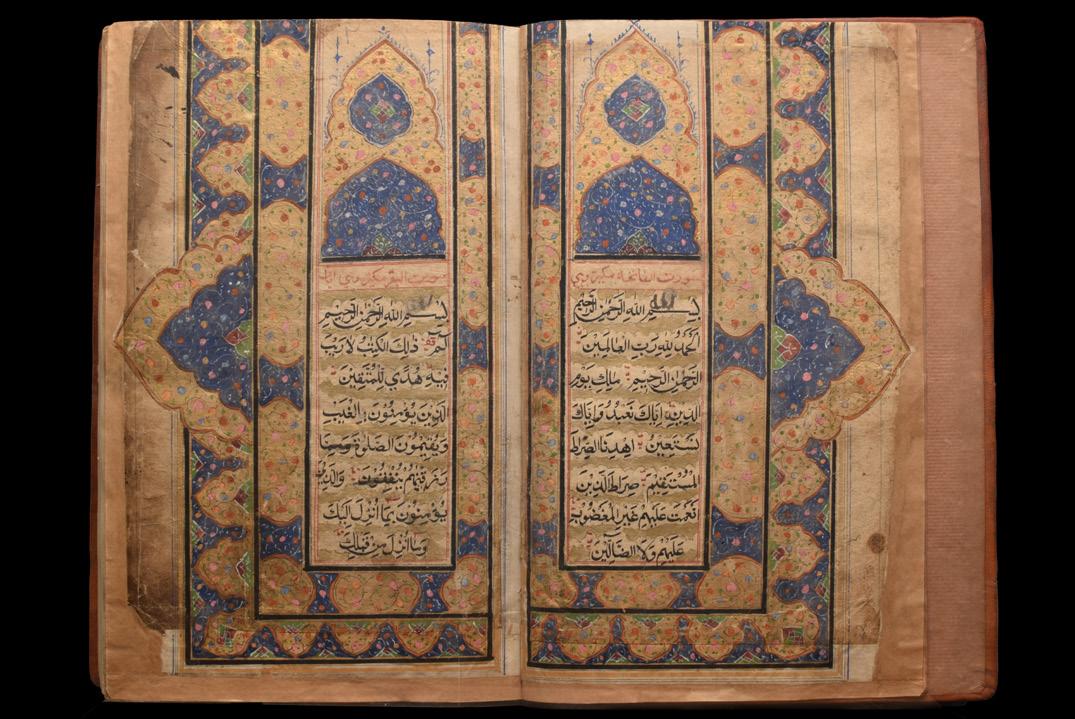 سورت الفاتحة
بِسْمِ اللهِ الرَّحْمٰنِ الرَّحِيْمِ
اَلْحَمْدُ لِلّٰهِ رَبِّ الْعَالَمِيْنَ
الرَّحْمٰنِ الرَّحِيْمِ مَالِكِ يَوْمِ
الدِّيْنِ اِيَّاكَ نَعْبُدُ وَاِيَّاكَ
نَسْتَعِيْنُ اِهْدِنَا الصِّرَاطَ
الْمُسْتَقِيْمَ صِرَاطَ الَّذِيْنَ
نْعَمْتَ عَلَيْهِمْ غَيْرِ الْمَغْضُوْبِ
عَلَيْهِمْ وَلَا الضَّالِّيْنَ
سورت البقر
بِسْمِ اللهِ الرَّحْمٰنِ الرَّحِيْمِ
الٓمّٓ ذٰلِكَ الْكِتٰبُ لَا رَيْبَ
فِيْهِ هُدًى لِّلْمُتَّقِيْنَ
الَّذِيْنَ يُؤْمِنُوْنَ بِالْغَيْبِ
وَيُقِيْمُوْنَ الصَّلٰوةَ وَمِمَّا
رَزَقْنٰهُمْ يُنْفِقُوْنَ وَالَّذِيْنَ
يُؤْمِنُوْنَ بِمَا اُنْزِلَ اِلَيْكَ
وَمَا اُنْزِلَ مِنْ قَبْلِكَ